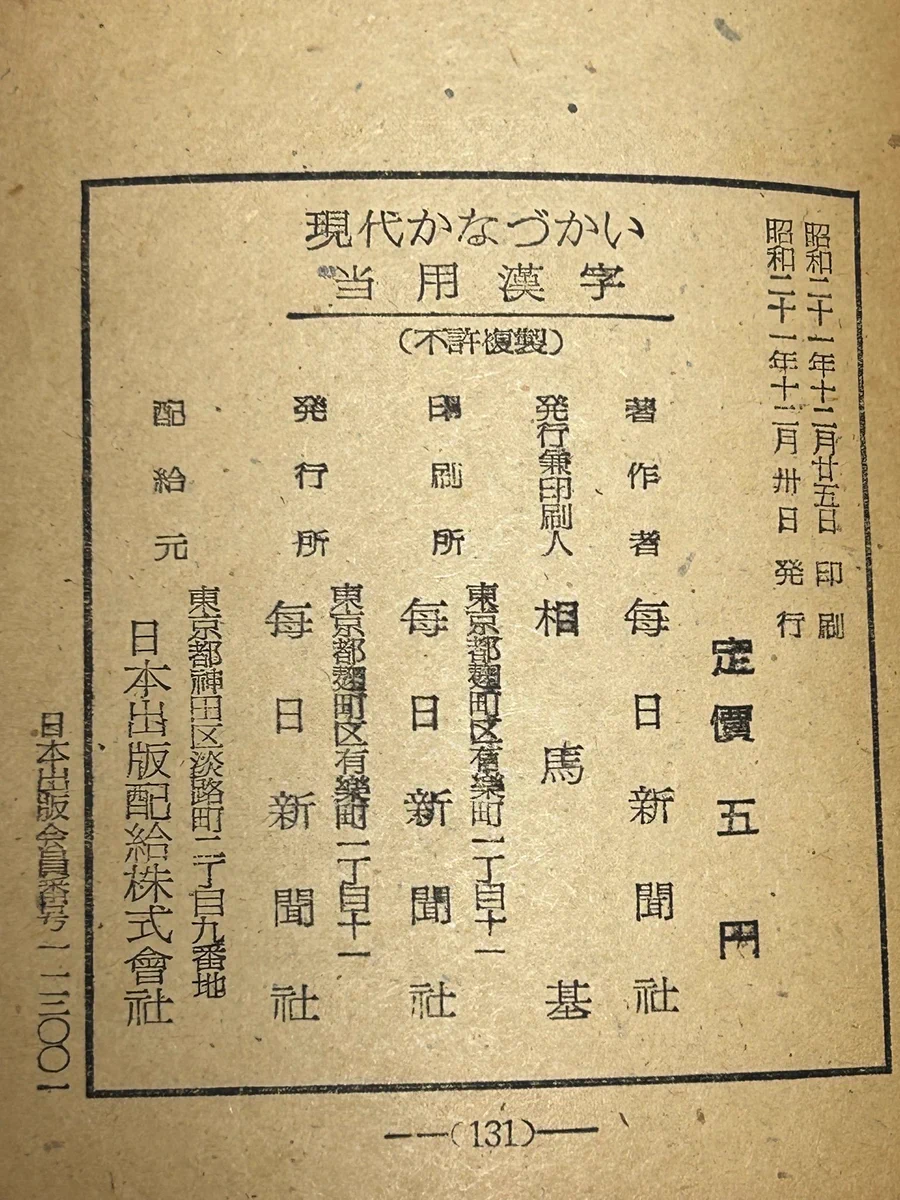 現代かなづかい
当用漢字
（不許複製）
昭和二十一年十二月廿五日 印刷
昭和二十一年十二月卅日 発行
定價五円
著作者 每日新聞社
発行兼印刷人 相馬基
東京都麹町区有樂町一丁目十一
印刷所 每日新聞社
東京都麹町区有樂町一丁目十一
発行所 每日新聞社
東京都神田区淡路町二丁目九番地
配給元 日本出版配給株式會社
日本出版会員番号一一三〇〇一
(131)